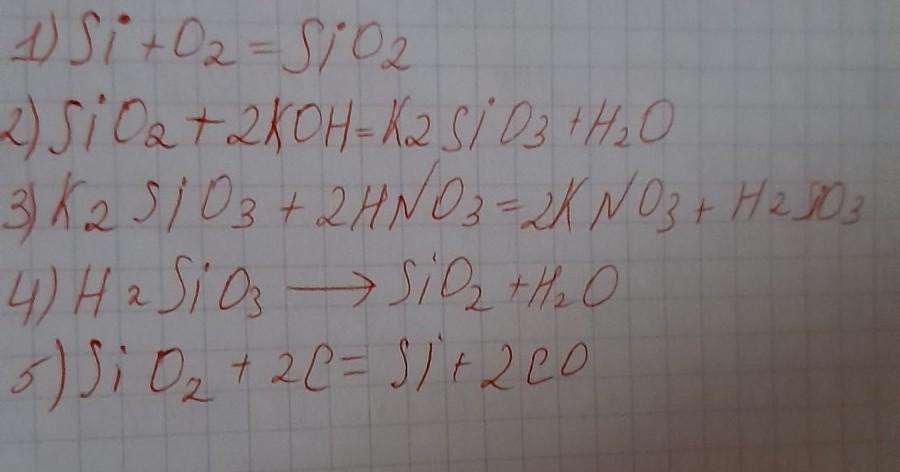 1) Si + O2 = SiO2
2) SiO2 + 2KOH = K2SiO3 + H2O
3) K2SiO3 + 2HNO3 = 2KNO3 + H2SiO3
4) H2SiO3 → SiO2 + H2O
5) SiO2 + 2C = Si + 2CO